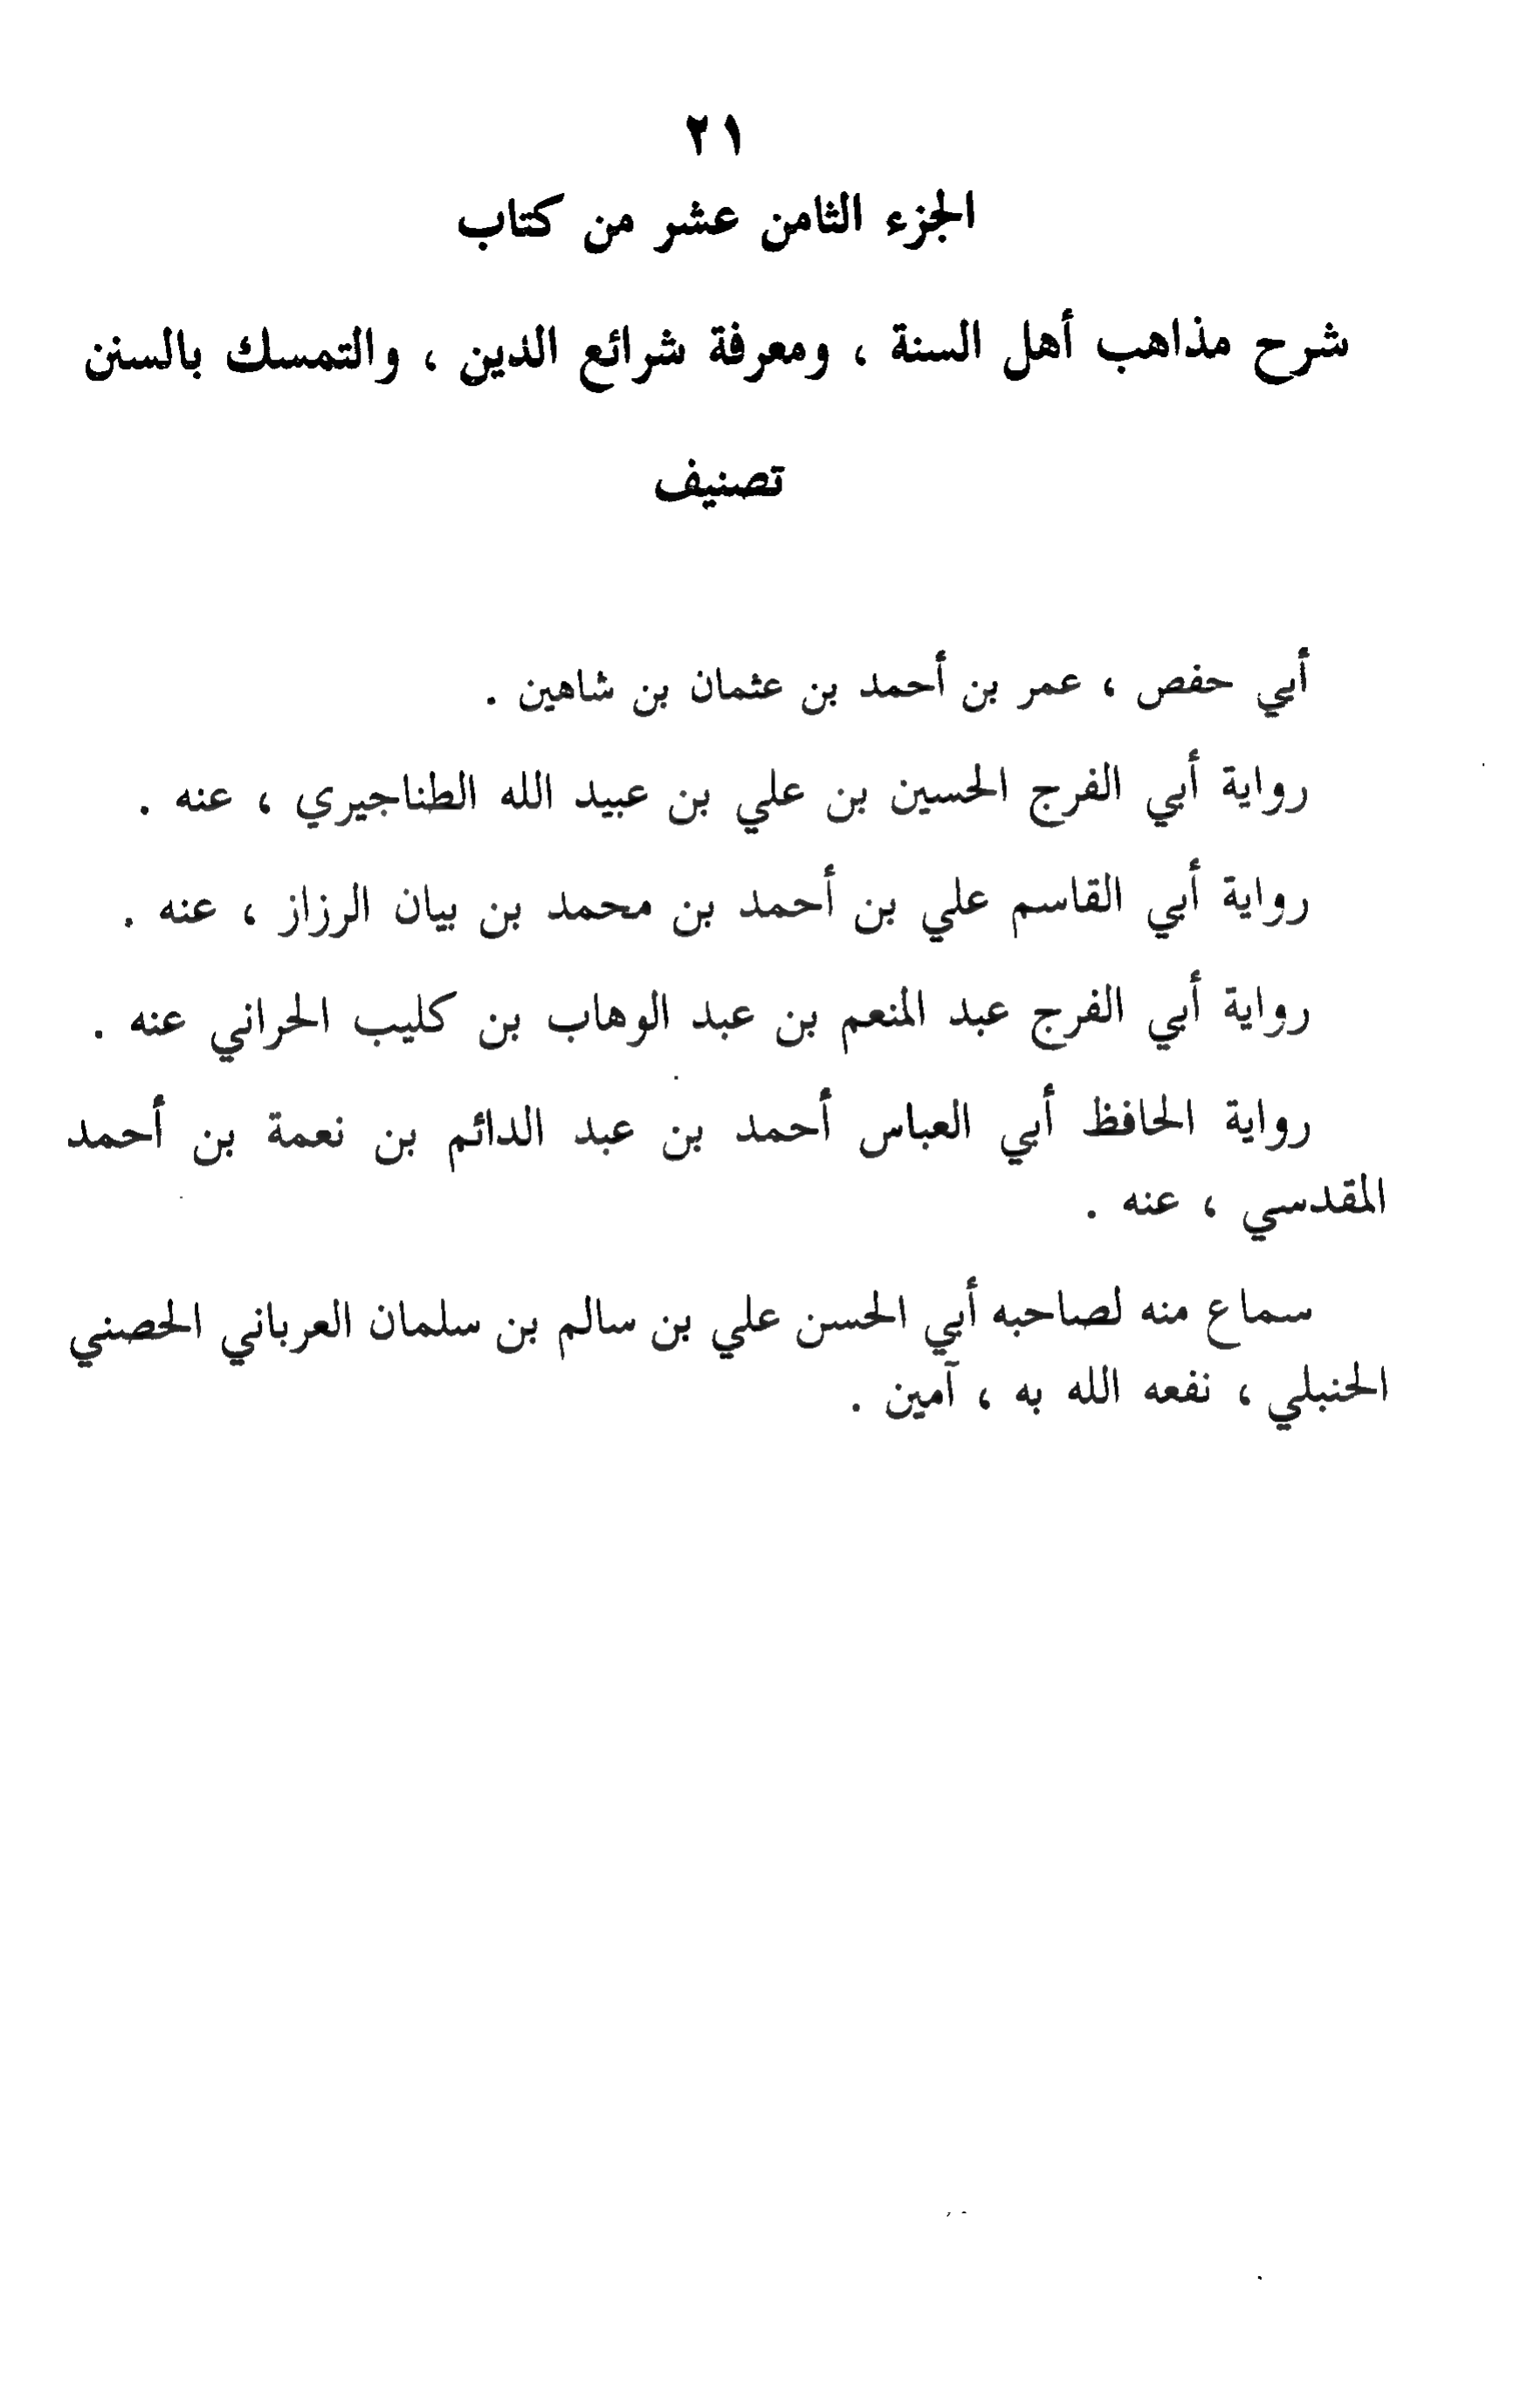 ٢١
الجزء الثامن عشر من كتاب
شرح مذاهب أهل السنة ، ومعرفة شرائع الدين ، والتمسك بالسنن
تصنيف
أبي حفص ، عمر بن أحمد بن عثمان بن شاهين .
رواية أبي الفرج الحسين بن علي بن عبيد الله الطناجيري ، عنه .
رواية أبي القاسم علي بن أحمد بن محمد بن بيان الرزاز ، عنه .
رواية أبي الفرج عبد المنعم بن عبد الوهاب بن كليب الحراني عنه .
رواية الحافظ أبي العباس أحمد بن عبد الدائم بن نعمة بن أحمد
المقدسي ، عنه .
سماع منه لصاحبه أبي الحسن علي بن سالم بن سلمان العرباني الحصني
الحنبلي ، نفعه الله به ، آمين .